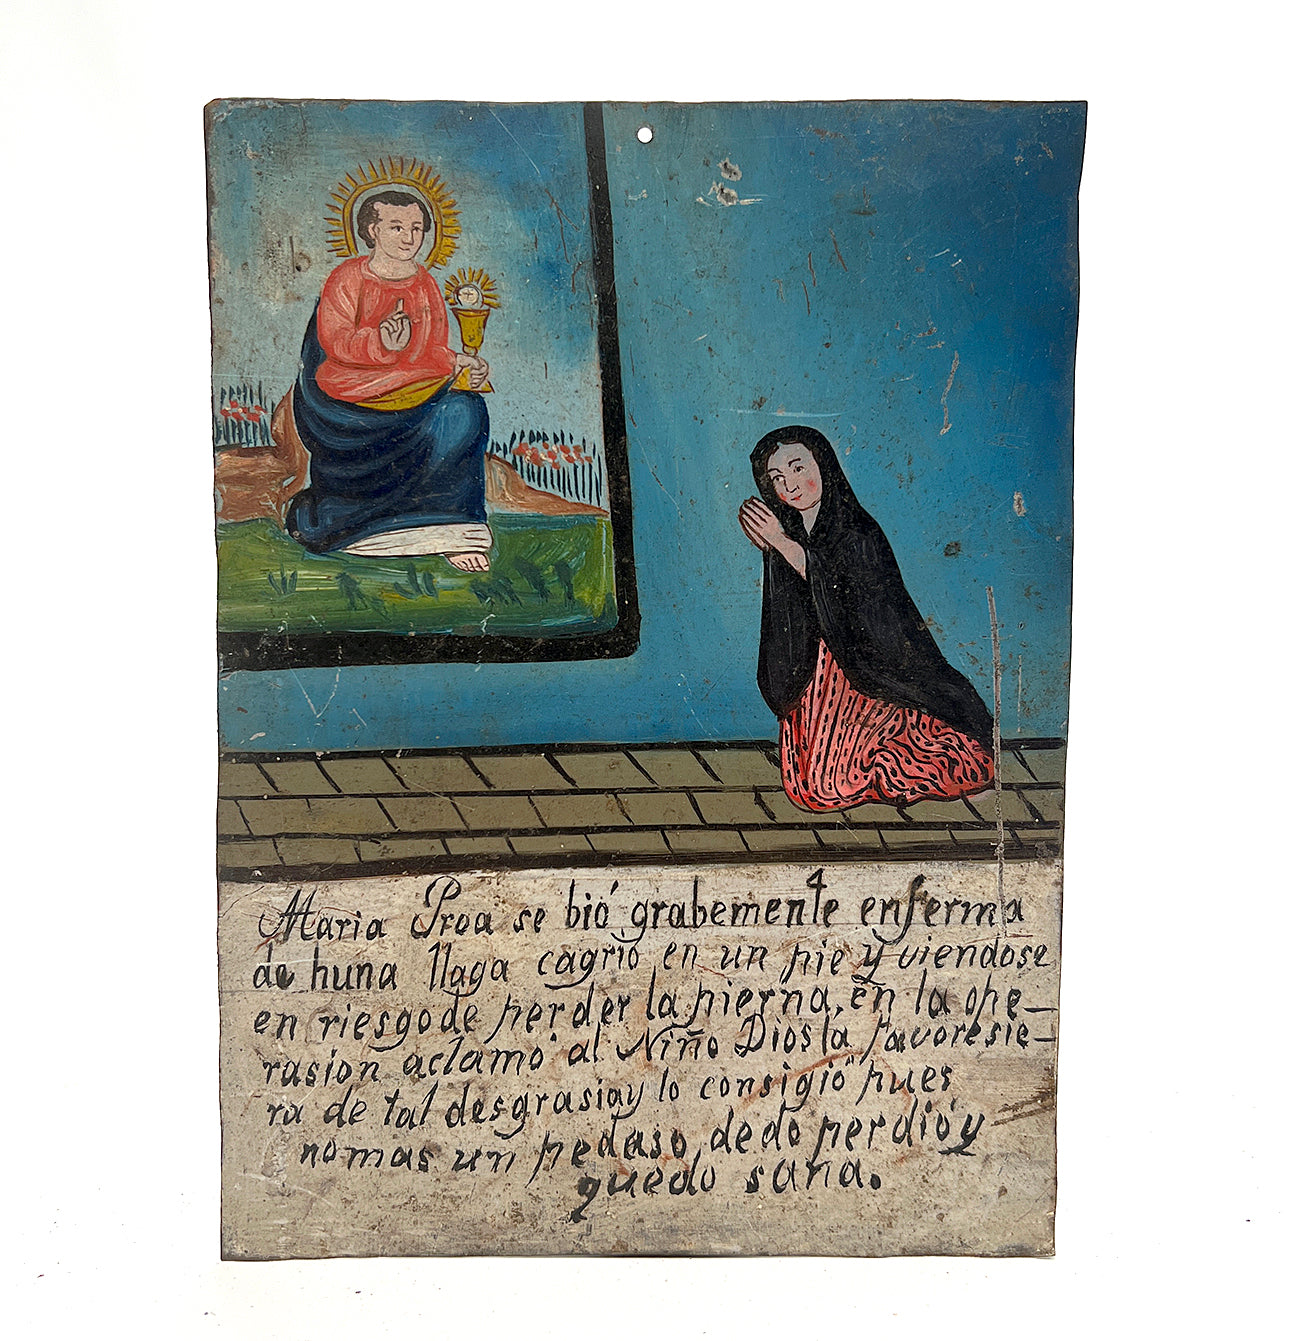 Maria Proa se bió grabemente enferma
de huna llaga cagrio en un pie y viendose
en riesgo de perder la pierna, en la ope-
rasion aclamó al Niño Dios la favoresie-
ra de tal desgrasia y lo consigió pues
nomas un pedaso dedo perdió y
quedo sana.